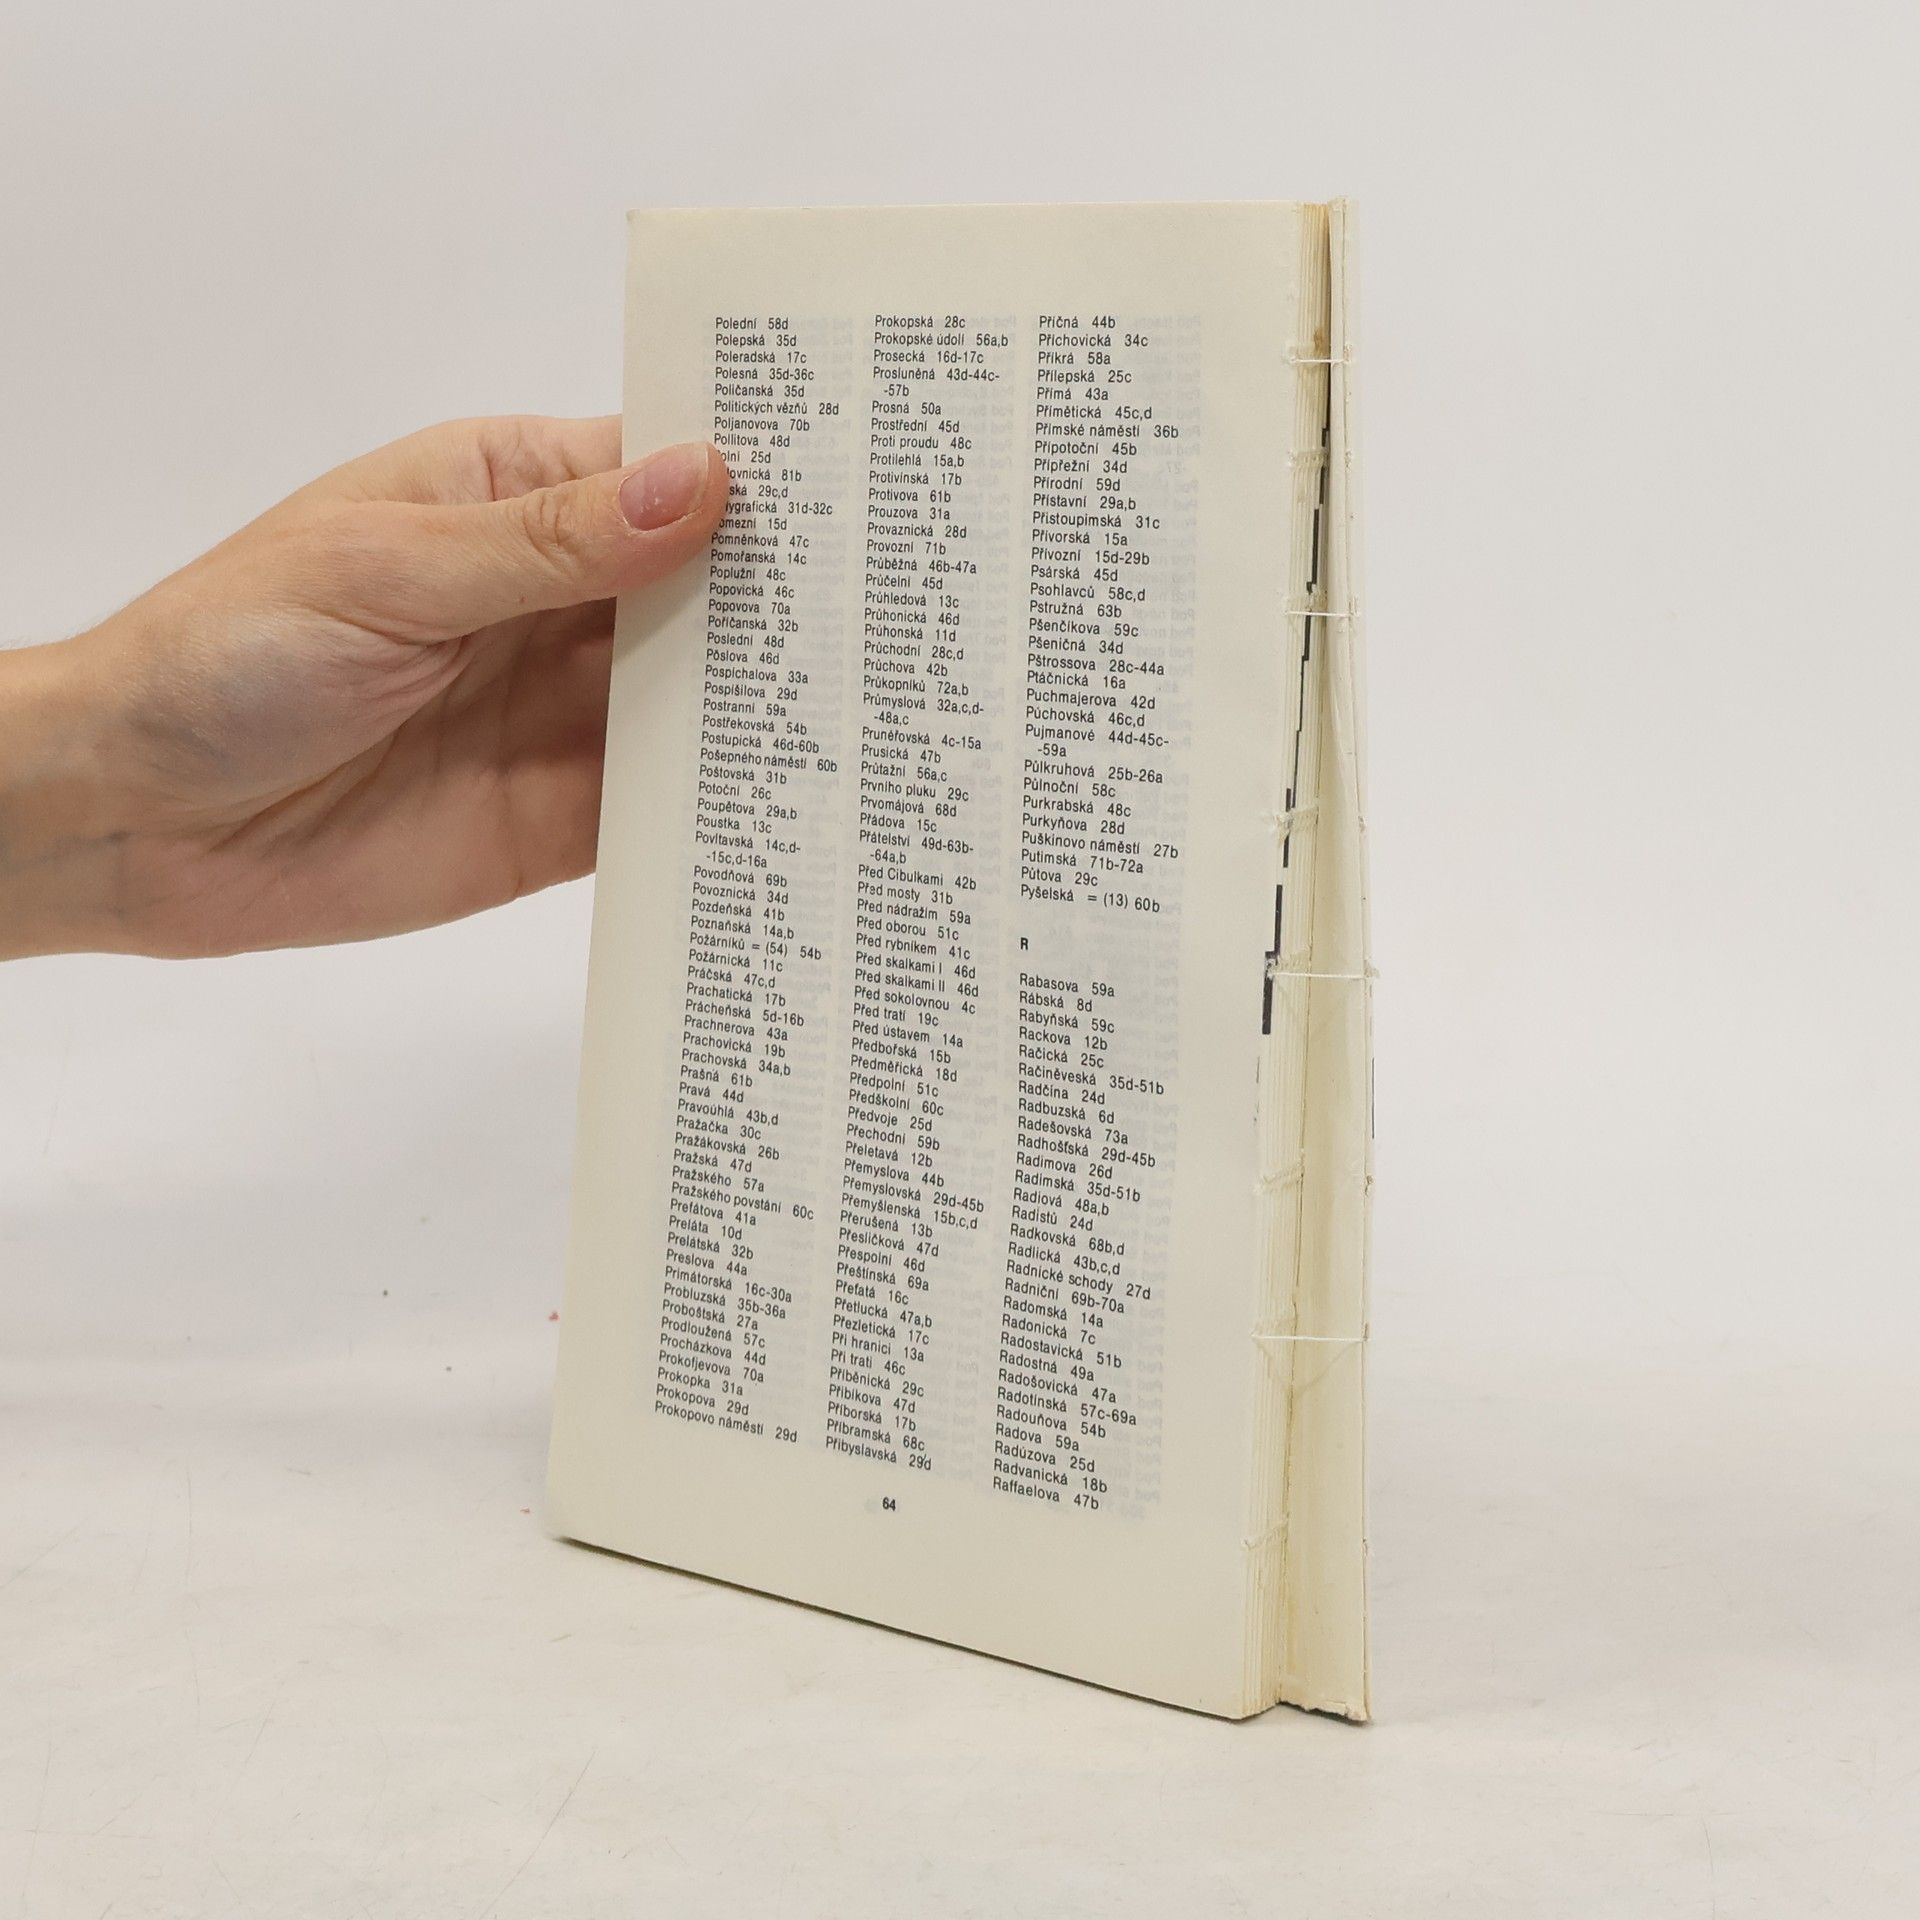 Polední 58d
Polepská 35d
Poleradská 17c
Polesná 35d-36c
Poličanská 35d
Politických vězňů 28d
Poljanovova 70b
Pollitova 48d
olní 25d
lovnická 81b
ská 29c,d
ygrafická 31d-32c
omezní 15d
Pomněnková 47c
Pomořanská 14c
Poplužní 48c
Popovická 46c
Popovova 70a
Poříčanská 32b
Poslední 48d
Pöslova 46d
Pospíchalova 33a
Pospíšilova 29d
Postranní 59a
Postřekovská 54b
Postupická 46d-60b
Pošepného náměstí 60b
Poštovská 31b
Potoční 26c
Poupětova 29a,b
Poustka 13c
Povltavská 14c,d-
-15c,d-16a
Povodňová 69b
Povoznická 34d
Pozdeňská 41b
Poznaňská 14a,b
Požárníků = (54) 54b
Požárnická 11c
Práčská 47c,d
Prachatická 17b
Prácheňská 5d-16b
Prachnerova 43a
Prachovická 19b
Prachovská 34a,b
Prašná 61b
Pravá 44d
Pravoúhlá 43b,d
Pražačka 30c
Pražákovská 26b
Pražská 47d
Pražského 57a
Pražského povstání 60c
Prefátova 41a
Preláta 10d
Prelátská 32b
Preslova 44a
Primátorská 16c-30a
Probluzská 35b-36a
Proboštská 27a
Prodloužená 57c
Procházkova 44d
Prokofjevova 70a
Prokopka 31a
Prokopova 29d
Prokopovo náměstí 29d
Prokopská 28c
Prokopské údolí 56a,b
Prosecká 16d-17c
Prosluněná 43d-44c-
-57b
Prosná 50a
Prostřední 45d
Proti proudu 48c
Protilehlá 15a,b
Protivínská 17b
Protivova 61b
Prouzova 31a
Provaznická 28d
Provozní 71b
Průběžná 46b-47a
Průčelní 45d
Průhledová 13c
Průhonická 46d
Průhonská 11d
Průchodní 28c,d
Průchova 42b
Průkopníků 72a,b
Průmyslová 32a,c,d-
-48a,c
Prunéřovská 4c-15a
Prusická 47b
Průtažní 56a,c
Prvního pluku 29c
Prvomájová 68d
Přádova 15c
Přátelství 49d-63b-
-64a,b
Před Cibulkami 42b
Před mosty 31b
Před nádražím 59a
Před oborou 51c
Před rybníkem 41c
Před skalkami I 46d
Před skalkami II 46d
Před sokolovnou 4c
Před tratí 19c
Před ústavem 14a
Předbořská 15b
Předměřická 18d
Předpolní 51c
Předškolní 60c
Předvoje 25d
Přechodní 59b
Přeletavá 12b
Přemyslova 44b
Přemyslovská 29d-45b
Přemyšlenská 15b,c,d
Přerušená 13b
Přesličková 47d
Přespolní 46d
Přeštínská 69a
Přeťatá 16c
Přetlucká 47a,b
Přezletická 17c
Při hranici 13a
Při trati 46c
Příběnická 29c
Přibíkova 47d
Příborská 17b
Příbramská 68c
Přibyslavská 29d
Příčná 44b
Příchovická 34c
Příkrá 58a
Přílepská 25c
Přímá 43a
Přímětická 45c,d
Přímské náměstí 36b
Přípotoční 45b
Přípřežní 34d
Přírodní 59d
Přístavní 29a,b
Přistoupimská 31c
Přívorská 15a
Přívozní 15d-29b
Psárská 45d
Psohlavců 58c,d
Pstružná 63b
Pšenčíkova 59c
Pšeničná 34d
Pštrossova 28c-44a
Ptáčnická 16a
Puchmajerova 42d
Púchovská 46c,d
Pujmanové 44d-45c-
-59a
Půlkruhová 25b-26a
Půlnoční 58c
Purkrabská 48c
Purkyňova 28d
Puškinovo náměstí 27b
Putimská 71b-72a
Půtova 29c
Pyšelská = (13) 60b
R
Rabasova 59a
Rábská 8d
Rabyňská 59c
Rackova 12b
Račická 25c
Račiněveská 35d-51b
Radčina 24d
Radbuzská 6d
Radešovská 73a
Radhošťská 29d-45b
Radimova 26d
Radimská 35d-51b
Radiová 48a,b
Radistů 24d
Radkovská 68b,d
Radlická 43b,c,d
Radnické schody 27d
Radniční 69b-70a
Radomská 14a
Radonická 7c
Radostavická 51b
Radostná 49a
Radošovická 47a
Radotínská 57c-69a
Radouňova 54b
Radova 59a
Radúzova 25d
Radvanická 18b
Raffaelova 47b
64